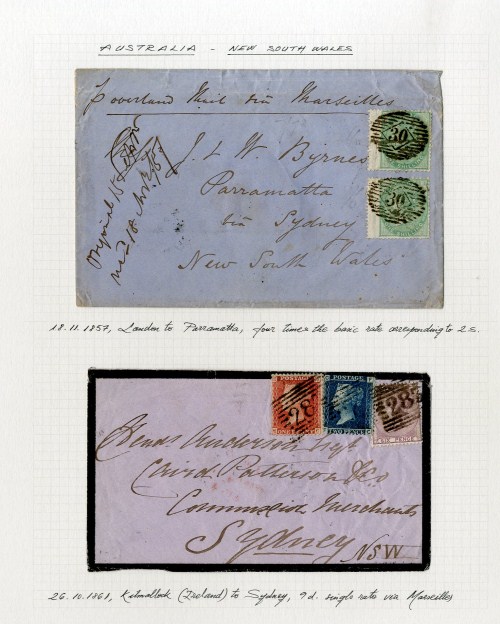 AUSTRALIA - NEW SOUTH WALES
overland Mail via Marseilles
Original 15
18 Nov
J. L. W. Byrnes
Parramatta
via Sydney
New South Wales
30
30
18.11.1857, London to Parramatta, four times the basic rate corresponding to 2s.
POSTAGE
POSTAGE
28
28
TWO PENCE
SIX PENCE
Anderson
Caird Patterson & Co
Commission Merchants
Sydney
NSW
26.10.1861, Kilmallock (Ireland) to Sydney, 9d. single rate via Marseilles